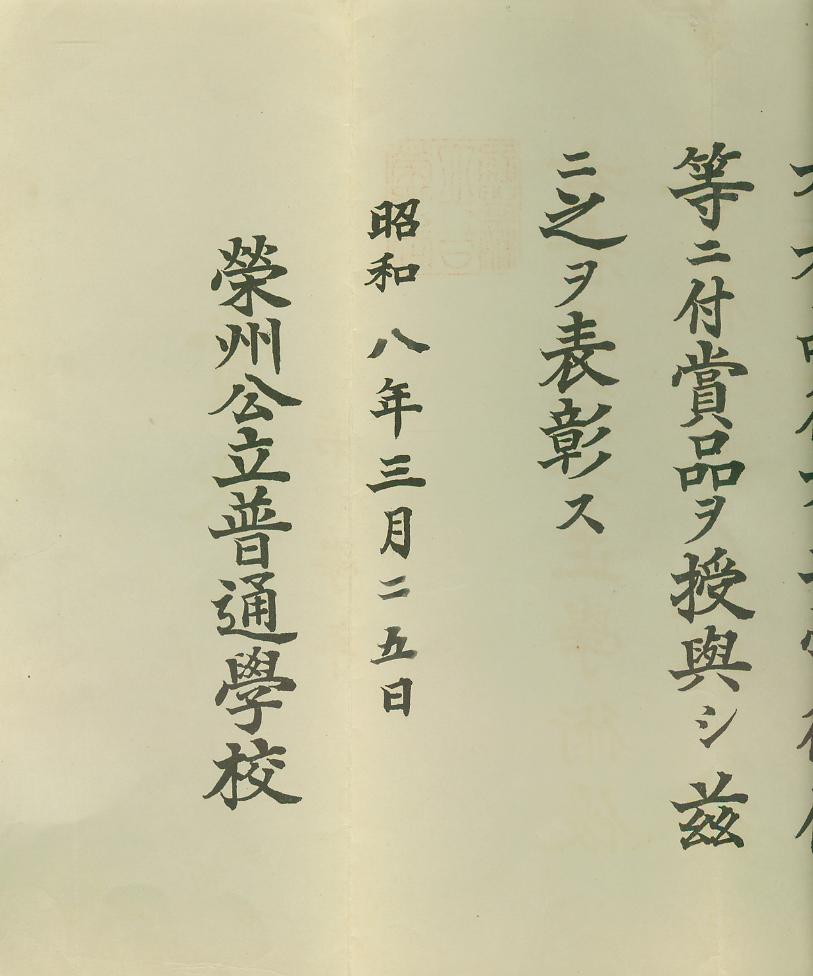 等ニ付賞品ヲ授與シ茲
ニ之ヲ表彰ス
昭和八年三月二五日
榮州公立普通學校